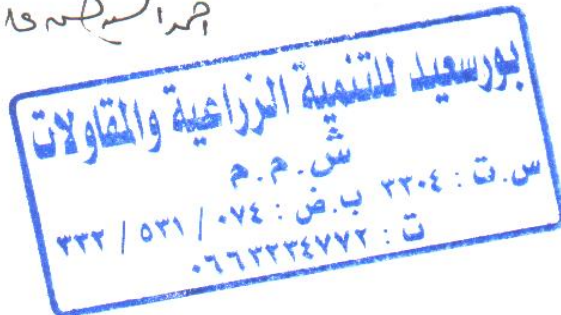 احمد السيد
بورسعيد للتنمية الزراعية والمقاولات
ش.م.م
س.ت : ٣٣٠٤ ب.ض : ٠٧٤ / ٥٣١ / ٣٣٢
ت : ٠٦٦٣٢٣٤٧٧٢